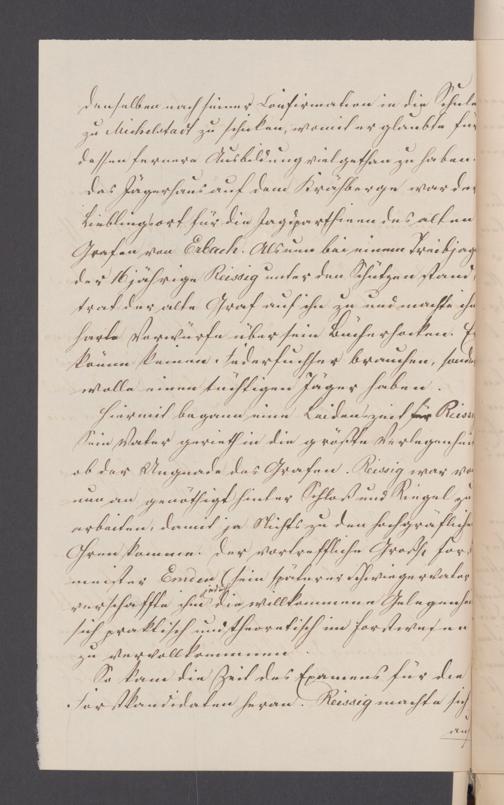 denselben nach seiner Confirmation in die Schule
zu Michelstadt zu schicken, womit er glaubte für
dessen fernere Ausbildung viel gethan zu haben.
Das Jägerhaus auf dem Krähberge war der
Lieblingsort für die Jagdparthieen des alten
Grafen von Erbach. Als nun bei einem Treibjag
der 16 jährige Reissig unter den Schützen stand,
trat der alte Graf auf ihn zu und machte ihm
harte Vorwürfe über sein Bücherhocken. Er
könne keinen Federfuchser brauchen, sonder
wolle einen tüchtigen Jäger haben.
Hiermit begann eine Leidenszeit für Reiss
Sein Vater gerieth in die größte Verlegenheit
ob der Ungnade des Grafen. Reissig war von
nun an genöthigt hinter Schloß und Riegel zu
arbeiten, damit ja Nichts zu den hochgräflichen
Ohren komme. Der vortreffliche Großh. Forst
meister (sein späterer Schwiegervater
verschaffte ihm die willkommene Gelegenhei
sich praktisch und theoretisch im Forstwesen
zu vervollkommnen.
So kam die Zeit des Examens für die
Forstkandidaten heran. Reissig machte sich
auf